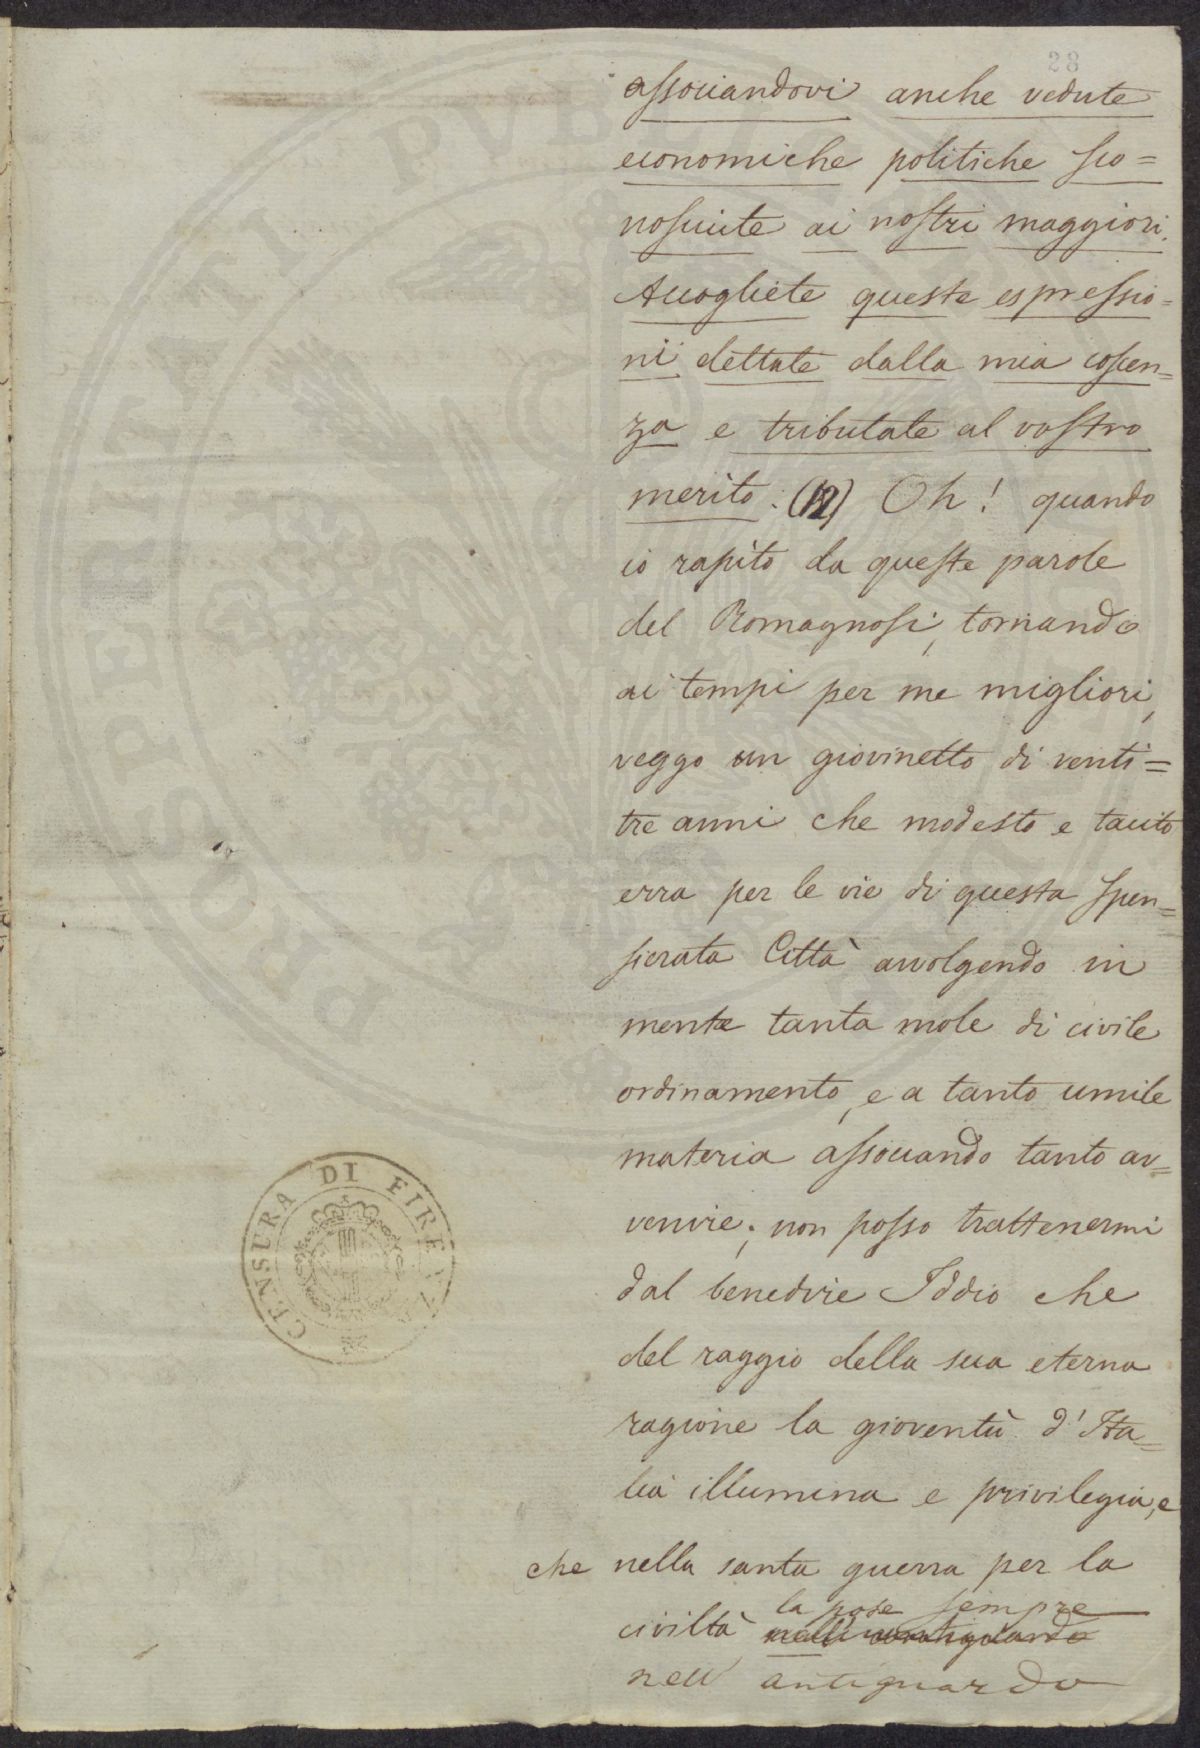 28
associandovi anche vedute
economiche politiche sco=
nosciute ai nostri maggiori.
Accogliete queste espressio=
ni dettate dalla mia coscen=
za e tributate al vostro
merito. (12) Oh! quando
io rapito da queste parole
del Romagnosi, tornando
ai tempi per me migliori,
veggo un giovinetto di venti=
tre anni che modesto e tacito
erra per le vie di questa spen=
sierata Città avvolgendo in
mente tanta mole di civile
ordinamento, e a tanto umile
materia associando tanto av=
venire; non posso trattenermi
dal benedire Iddio che
del raggio della sua eterna
ragione la gioventù d'Ita=
lia illumina e privilegia, e
che nella santa guerra per la
la pose sempre
civiltà
nell antiguardo
CENSURA DI FIRENZ